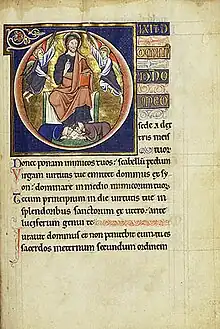 IXIT D
OMIN
DNO
MEO
sede a dex
tris meis
Donec ponam inimicos tuos: scabellū pedum
Virgam uirtutis tue emittet dominus ex sy
on: dominare in medio inimicorum tuor
Tecum principium in die uirtutis tue in
splendoribus sanctorum ex utero: ante
luciferum genui te
Iurauit dominus et non penitebit eum: tu es
sacerdos in eternum secundum ordinem